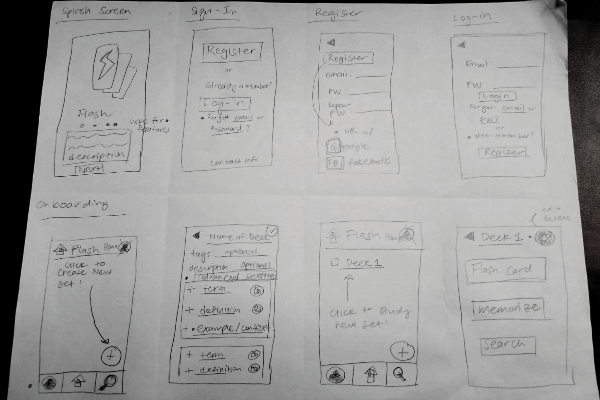 Splash Screen
Flash
swipe for
features
description
NEXT
Sign-In
Register
or
Already a member?
Log-in
Forgot email or
Password?
contact info
Register
Register
email
PW
Repeat
PW
or w/
Google
facebook
Log-in
Email
PW
Login
Forgot email or
PW?
or
Not a member?
Register
Onboarding
Flash Home
Click to
Create New
Set!
Name of Deck
tags optional
description optional
term
definition
Example/context
term
definition
Flash
Deck 1
Click to study
new set!
Deck 1
Flash Card
Memorize
Search